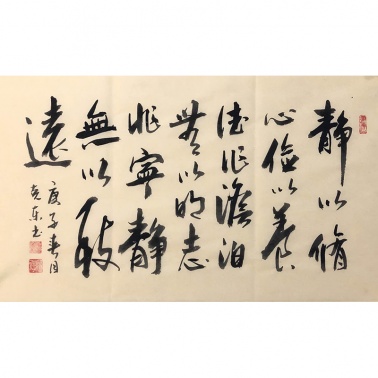 靜以脩
心儉以養
德非澹泊
無以明志
非寧靜
無以致
遠
庚子春月
克东书